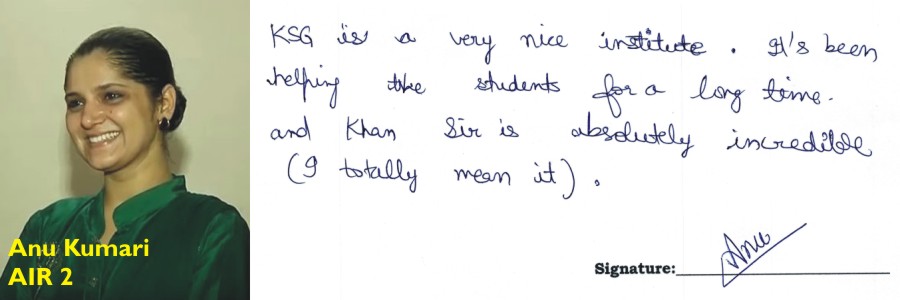 Anu Kumari
AIR 2
KSG is a very nice institute. It's been
helping the students for a long time.
and Khan Sir is absolutely incredible
(I totally mean it).
Signature: Anu